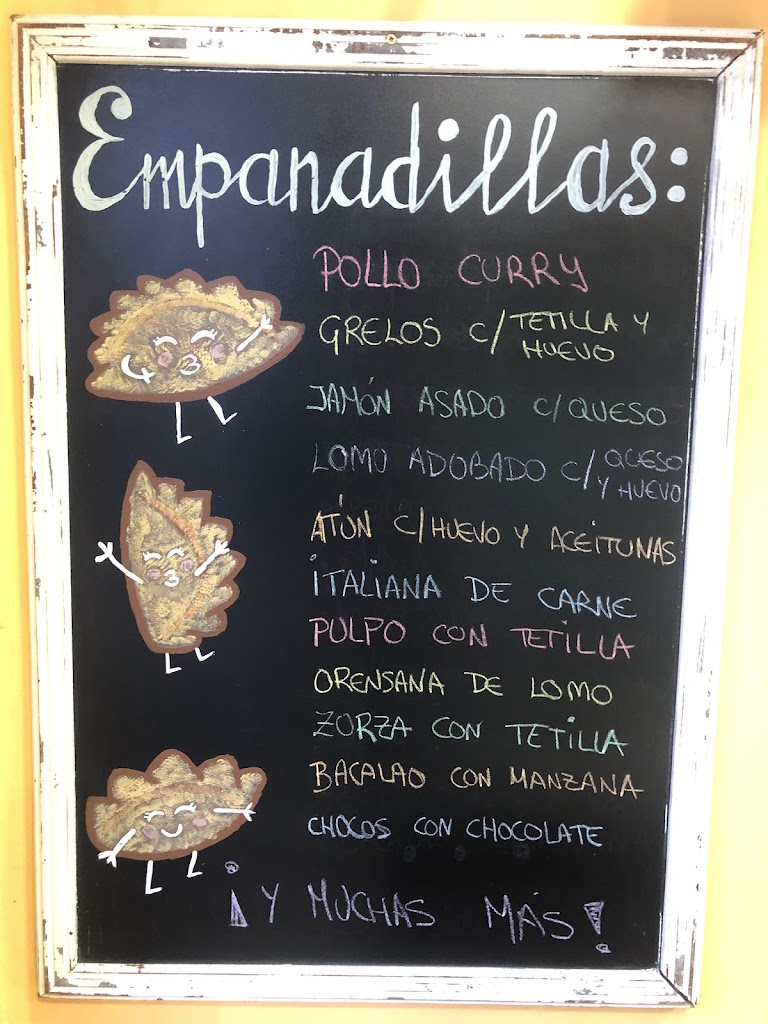 Empanadillas:
POLLO CURRY
GRELOS C/TETILLA Y
HUEVO
JAMÓN ASADO C/QUESO
LOMO ADOBADO C/QUESO
Y HUEVO
ATÚN C/HUEVO Y ACEITUNAS
ITALIANA DE CARNE
PULPO CON TETILLA
ORENSANA DE LOMO
ZORZA CON TETILLA
BACALAO CON MANZANA
CHOCOS CON CHOCOLATE
¡Y MUCHAS MÁS!